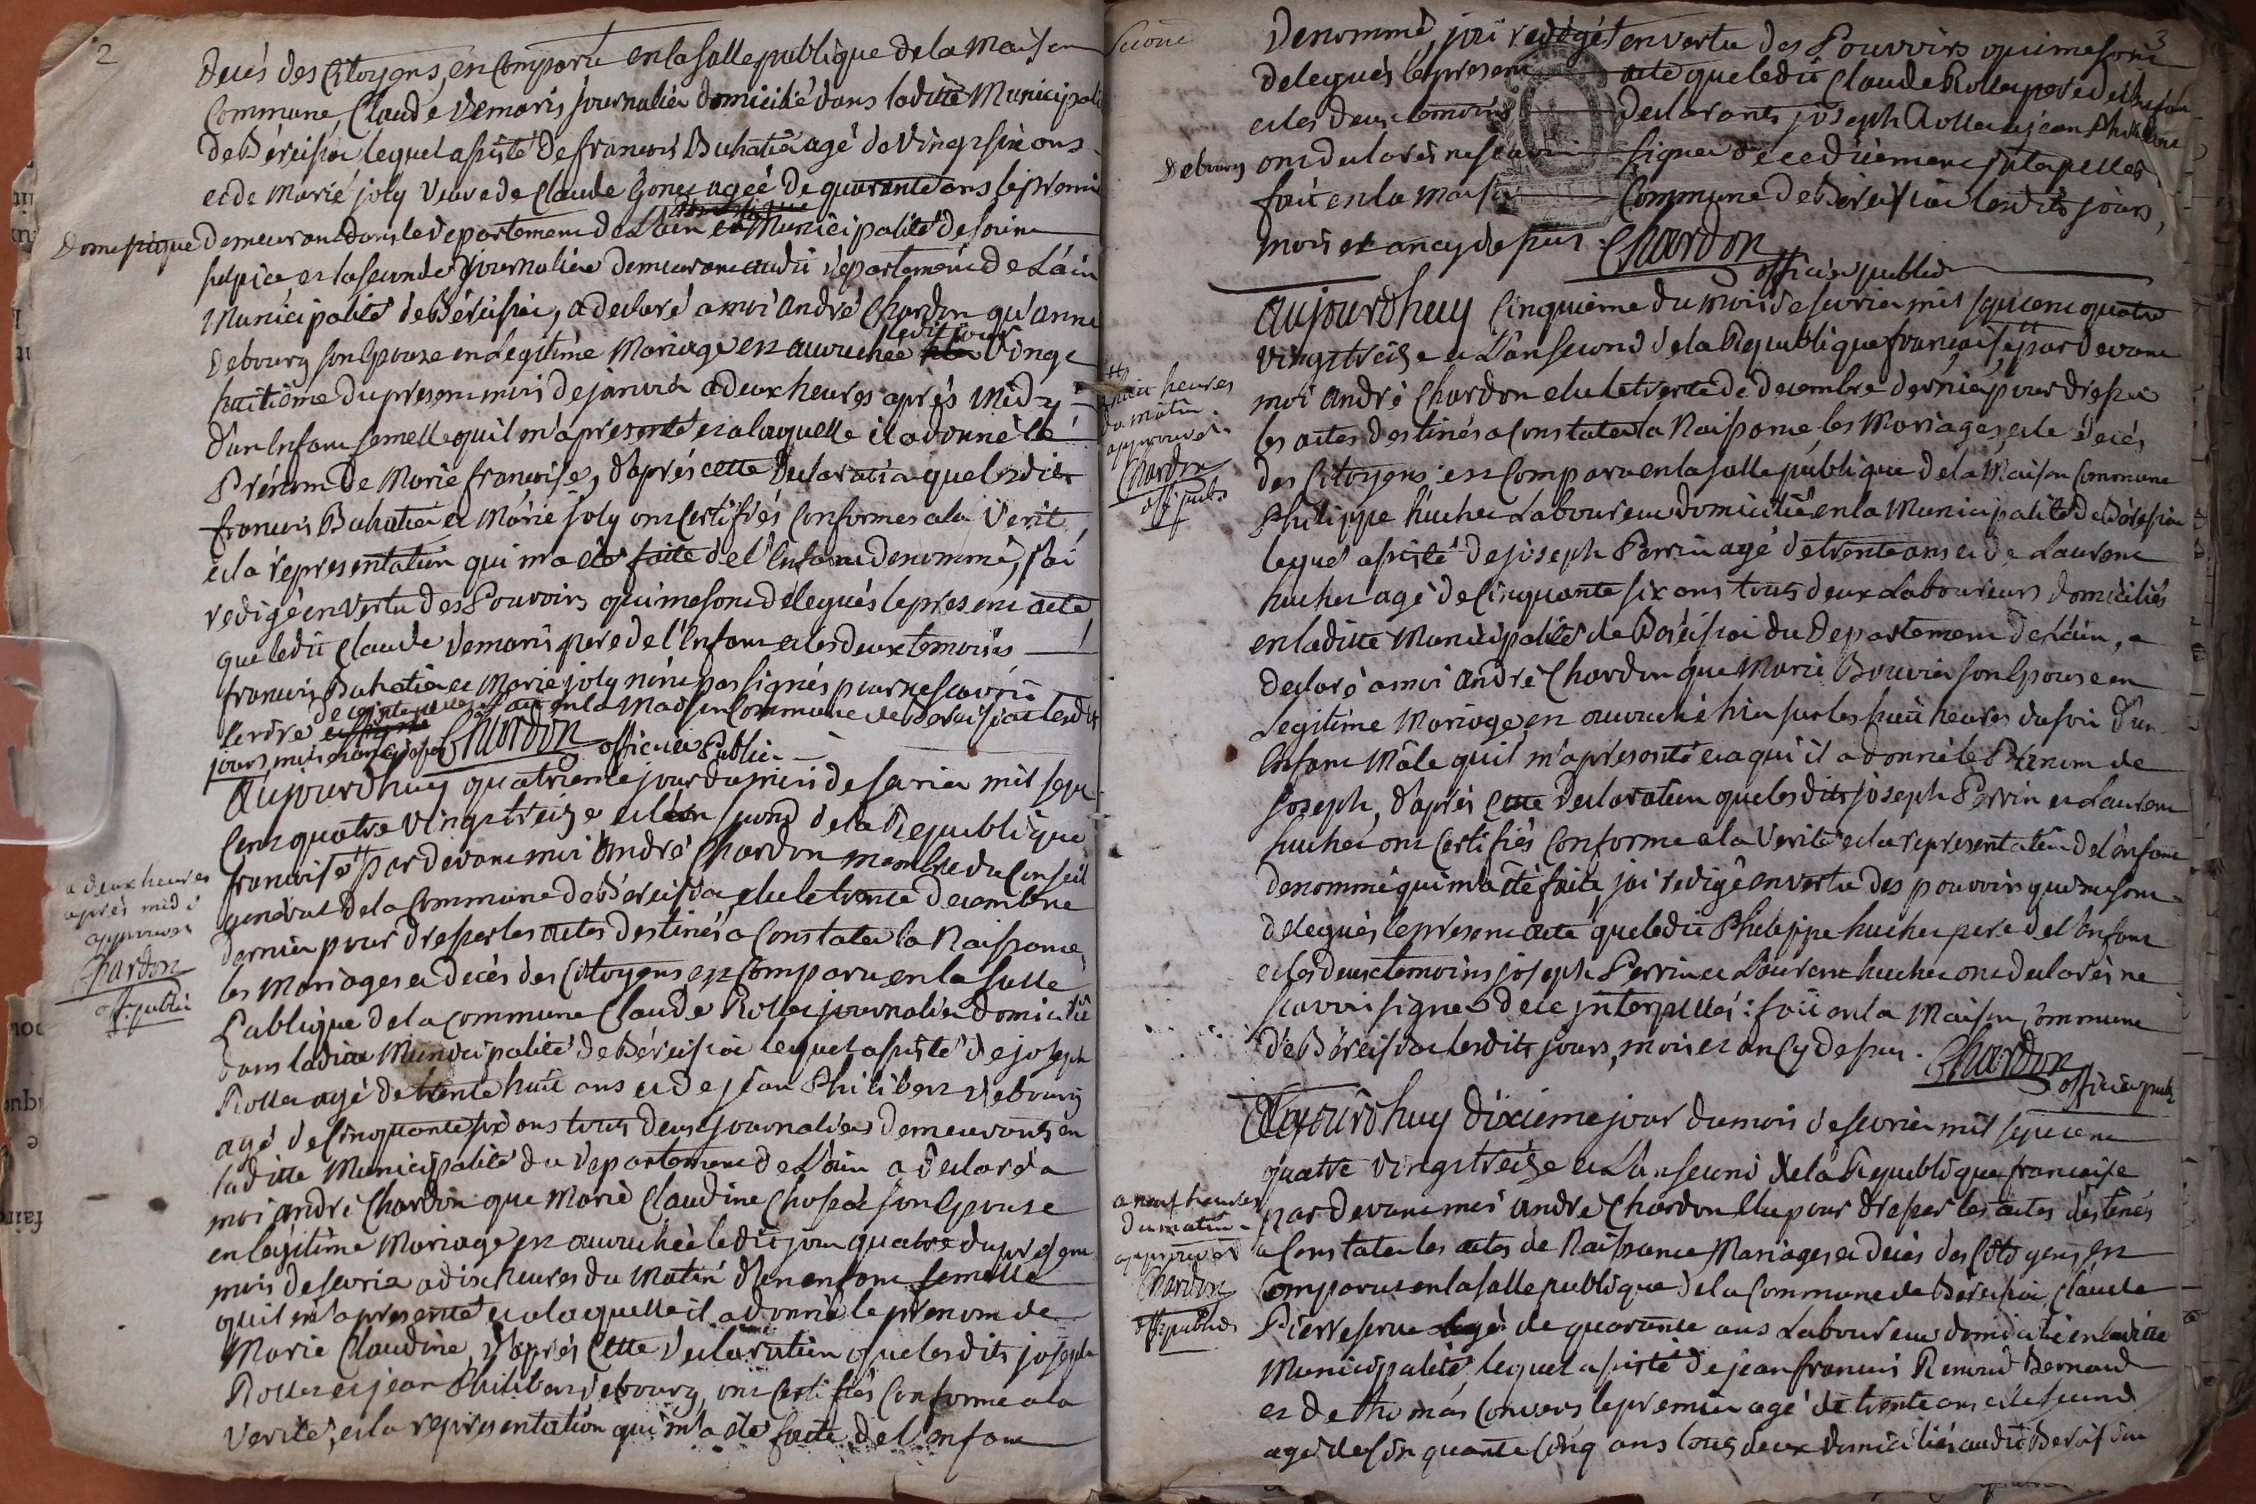 2
decés des Citoyens, en Comparu en la salle publique de la Maison
Commune, Claude Demaris journalier domicilié dans laditte Municipalité
de Béreisiat lequel assisté de francois Buhatier agé de vingt six ans
et de Marie joly veuve de Claude Gones ageé de quarante ans le premier
Domestique demeurant dans le departement de L'ain et Municipalité de
sulpice et la seconde journaliere demeurant audit departement de L'ain
Municipalité de Béreisiat, a declaré a moi andré Chardon qu'anne
ledit jour
debourg son Epouse en Legitime Mariage est accouchée vingt
huitiéme du present mois de janvier a deux heures aprés Midy
d'un Enfant femelle qu'il m'a presenté et a laquelle il a donné le
Prénom de Marie francoise, d'aprés cette declaration que lesdits
francois Buhatier et Marie joly ont Certifiés Conformes a la Verité
et la représentation qui m'a eté faite de l'Enfant denommé, j'ai
redigé en vertu des Pouvoirs qui me sont délegués le present acte
que ledit Claude Demaris pere de l'Enfant et les deux temoins
francois Buhatier et Marie joly n'ont pas signés pour ne scavoir
Ecrire de ce interpellés fait en la Maison Commune de Béreisiat lesdits
jours, mois et an cy dessus Chardon officier Public
Aujourdhuy quatrieme jour du mois de fevrier mil sept
Cent quatre vingt treize et l'an second de la Republique
francoise par devant moi André Chardon membre du Conseil
a deux heures
aprés midi
approuvés
Chardon
off. public
général de la Commune de Béreisiat elu le trente decembre
dernier pour dresser les actes destinés a Constater la Naissance
les Mariages et decés des Citoyens est Comparu en la salle
Publique de la Commune Claude Rollet journalier domicilié
dans laditte Municipalité de Béreisiat lequel assisté de joseph
Rollet agé de trente huit ans et de jean Philibert debourg
agé de Cinquante six ans tous deux journaliers demeurants en
laditte Municipalité du departement de L'ain a declaré a
moi andré Chardon que Marie Claudine son Epouse
en legitime Mariage est accouchée ledit jour quatre du present
mois de fevrier a dix heures du Matin d'un enfant femelle
qu'il m'a presenté et a laquelle il a donné le prenom de
Marie Claudine, d'aprés Cette declaration que lesdits joseph
Rollet et jean Philibert debourg, ont Certifiés Conforme a la
Verité, et la représentation qui m'a eté faite de l'Enfant
3
denommé, j'ai redigé en vertu des Pouvoirs qui me sont
delegués le present acte que ledit Claude Rollet pere de l'Enfant
et les deux temoins declarants joseph Rollet et jean Philibert
Debourg ont declarés ne scavoir signer de ce duement interpellés
fait en la Maison Commune de Béreisiat lesdits jours,
mois et an cy dessus. Chardon
officier public
Aujourdhuy Cinquième du mois de fevrier mil sept cent quatre
vingt treize et L'an second de la Republique francoise par devant
huit heures
du matin
approuvés
Chardon
off. public
moi André Chardon elu le trente de decembre dernier, pour dresser
les actes destinés a Constater la Naissance les Mariages et le decés
des Citoyens, est Comparu en la salle publique de la Maison Commune
Philippe huchet Laboureur domicilié en la Municipalité de Béreisiat
lequel assisté de joseph Perrin agé de trente ans et de Laurent
huchet agé de Cinquante six ans touts deux Laboureurs domiciliés
en laditte Municipalité de Béreisiat du departement de L'ain, a
declaré a moi André Chardon que Marie Bouvier son Epouse en
Legitime Mariage est accouché hier sur les huit heures du soir d'un
Enfant Mâle qu'il m'a presenté et a qui il a donné le Prenom de
Joseph, d'aprés Cette declaration que lesdits joseph Perrin et Laurent
huchet ont Certifiés Conforme a la Verité et la representation de l'Enfant
denommé qui m'a été faite, j'ai redigé en vertu des pouvoirs qui me sont
delegués le present acte que ledit Philippe huchet pere de l'Enfant
et les deux temoins joseph Perrin et Laurent huchet ont declarés ne
scavoir signer de ce interpellés: fait en la Maison Commune
de Béreisiat lesdits jours, mois et an Cy dessus. Chardon
officier public
Aujourdhuy dixieme jour du mois de fevrier mil sept cent
quatre vingt treize et L'an second de la Republique francoise
a neuf heures
du matin
approuvés
Chardon
off. public
par devant moi andré Chardon Elu pour dresser les actes destinés
a Constater les actes de Naissance Mariages et decés des Citoyens est
Comparus en la salle publique de la Commune de Béreisiat Claude
Pierre agé de quarante ans Laboureur domicilié en laditte
Municipalité, lequel assisté de jean francois Renoud Bernard
et de thomas Convers le premier agé de trente ans et le second
agé de Cinquante Cinq ans tous deux domiciliés audit Béreisiat